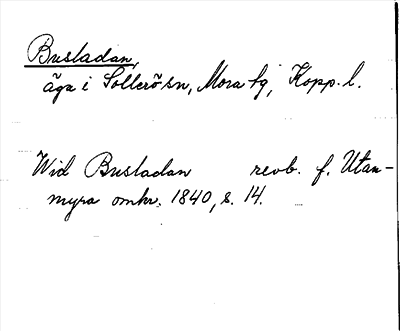 Busladan,
äga i Sollerö sn, Mora tg, Kopp. l.
Wid Busladan revb. f. Utan-
myra omkr. 1840, s. 14.